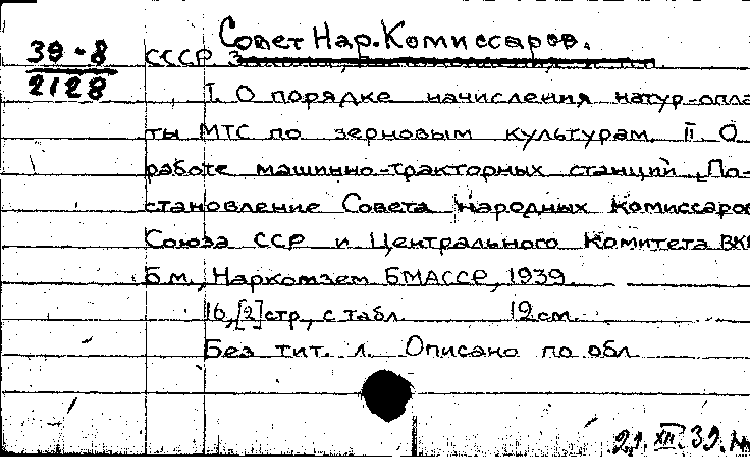 Совет Нар. Комиссаров.
39-8
2128
СССР
I. О порядке начисления натур-опла-
ты МТС по зерновым культурам. II. О
работе машинно-тракторных станций. [По-
становление Совета Народных Комиссаров
Союза ССР и Центрального Комитета ВКП
Б.м., Наркомзем БМАССР, 1939.
16,[2]стр., с табл. 19 см.
Без тит. л. Описано по обл.
21.XII.39.